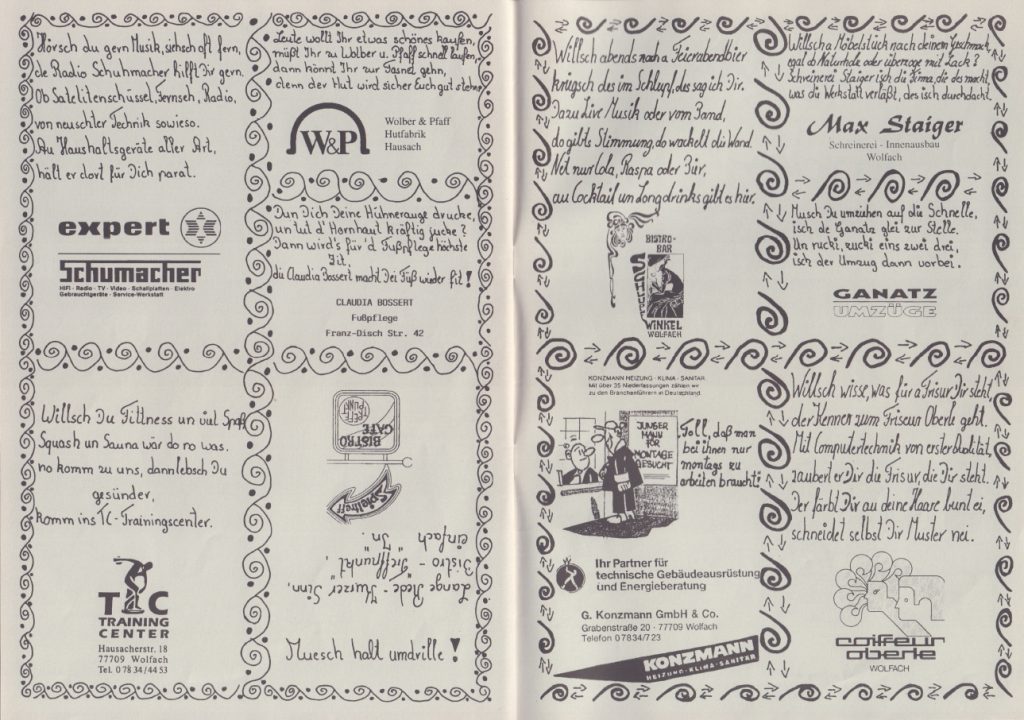 Hörsch du gern Musik, siehsch oft fern,
de Radio Schuhmacher hilft Dir gern.
Ob Satelitenschüssel, Fernseh, Radio,
von neuschter Technik sowieso.
Au Haushaltsgeräte aller Art,
hält er dort für Dich parat.
expert
Schumacher
HIFI · Radio · TV · Video · Schallplatten · Elektro
Gebrauchtgeräte · Service-Werkstatt
Leute wollt Ihr etwas schönes kaufen,
müßt Ihr zu Wolber u. Pfaff schnell laufen,
dann könnt Ihr zur Fasnet gehn,
denn der Hut wird sicher Euch gut stehn
W&P
Wolber & Pfaff
Hutfabrik
Hausach
Dun Dich Deine Hühnerauge drucke,
un tut d' Hornhaut kräftig jucke?
Dann wird's für 'd Fußpflege höchste
Zit,
die Claudia Bossert macht Dei Fuß wieder fit!
CLAUDIA BOSSERT
Fußpflege
Franz-Disch Str. 42
Willsch Du Fittness un viel Spaß
Squash un Sauna wär do no was.
no komm zu uns, dann lebsch Du
gesünder,
komm ins TC-Trainingscenter.
TC
TRAINING
CENTER
Hausacherstr. 18
77709 Wolfach
Tel. 0 78 34/44 53
Lange Rede - Kurzer Sinn,
Bistro - "Treffpunkt"
einfach "In".
Spieltreff
BISTRO
GATE
TREFF
PUNKT
Muesch halt umdrille!
Willsch abends nach a Feierabendbier
kriegsch des im Schlupf, des sag ich Dir.
Dazu Live Musik oder vom Band,
do gibts Stimmung, do wackelt die Wand.
Net nur Cola, Raspa oder Bier,
au Cocktail un Longdrinks gibt es hier.
BISTRO-
BAR
SCHLUPF
WINKEL
WOLFACH
Willsch a Möbelstück nach deinem Geschmack,
egal ob Naturholz oder überzoge mit Lack?
Schreinerei Staiger isch die Firma, die des macht,
was die Werkstatt verläßt, des isch durchdacht.
Max Staiger
Schreinerei - Innenausbau
Wolfach
Musch Du umziehen auf die Schnelle,
isch de Ganatz glei zur Stelle.
Un rucki, zucki eins zwei drei,
isch der Umzug dann vorbei.
GANATZ
UMZÜGE
KONZMANN HEIZUNG · KLIMA · SANITÄR
Mit über 35 Niederlassungen zählen wir
zu den Branchenführern in Deutschland.
JUNGER
MANN
FÜR
MONTAGE
GESUCHT
Toll, daß man
bei ihnen nur
montags zu
arbeiten braucht!
Ihr Partner für
technische Gebäudeausrüstung
und Energieberatung
G. Konzmann GmbH & Co.
Grabenstraße 20 · 77709 Wolfach
Telefon 0 78 34/7 23
KONZMANN
HEIZUNG · KLIMA · SANITÄR
Willsch wisse, was für a Frisur Dir steht,
der Kenner zum Friseur Oberle geht.
Mit Computertechnik von erster Qualität,
zaubert er Dir die Frisur, die Dir steht.
Der färbt Dir au deine Haare bunt ei,
schneidet selbst Dir Muster nei.
coiffeur
oberle
WOLFACH